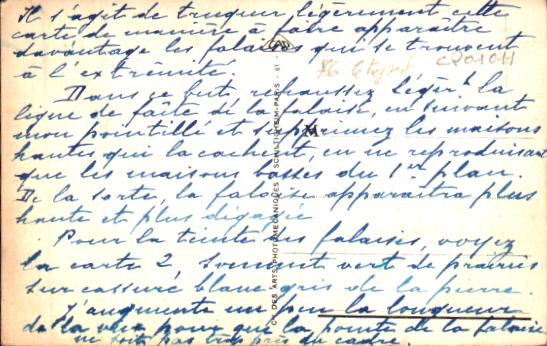 Il s'agit de truquer légèrement cette
carte de manière à faire apparaître
davantage les falaises qui se trouvent
à l'extrémité.
76 Etretat
CP01011
Dans ce but, rehaussez légèrt la
ligne de faîte de la falaise, en suivant
mon pointillé et supprimez les maisons
hautes qui la cachent, en ne reproduisant
que les maisons basses du 1er plan.
De la sorte, la falaise apparaîtra plus
haute et plus dégagée
Pour la teinte des falaises, voyez
la carte 2 Sommet vert de prairies
sur cassure blanc-gris de la pierre.
J'augmente un peu la longueur
de la vue pour que la pointe de la falaise
ne soit pas trop près du cadre
CIE DES ARTS PHOTOMÉCANIQUES SCHILTIGHEIM-PARIS - 61 -
CAP
M